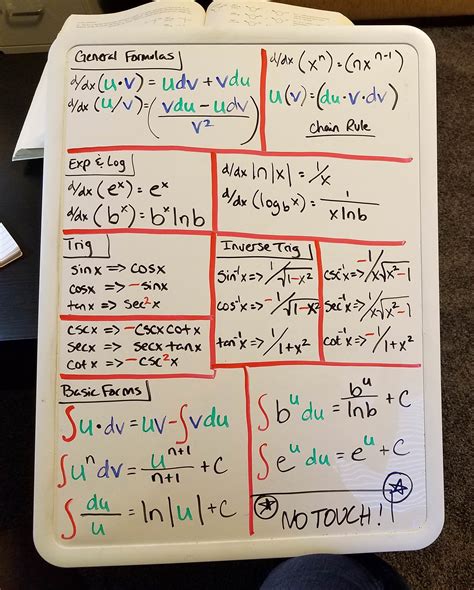 General Formulas
d/dx (u·v) = udv + vdu
d/dx (u/v) = (vdu - udv / v²)
d/dx (xⁿ) = (nxⁿ⁻¹)
u(v) = (du·v·dv)
Chain Rule
Exp & Log
d/dx (eˣ) = eˣ
d/dx (bˣ) = bˣ ln b
d/dx ln|x| = 1/x
d/dx (log_b x) = 1 / x ln b
Trig
sin x => cos x
cos x => -sin x
tan x => sec²x
csc x => -csc x cot x
sec x => sec x tan x
cot x => -csc²x
Inverse Trig
sin⁻¹x => 1/√1-x²
cos⁻¹x => -1/√1-x²
tan⁻¹x => 1/1+x²
csc⁻¹x => -1/x√x²-1
sec⁻¹x => 1/x√x²-1
cot⁻¹x => -1/1+x²
Basic Forms
∫u·dv = uv - ∫vdu
∫uⁿ dv = uⁿ⁺¹/n+1 + C
∫ du/u = ln|u| + C
∫ bᵘ du = bᵘ/ln b + C
∫ eᵘ du = eᵘ + C
NO TOUCH!